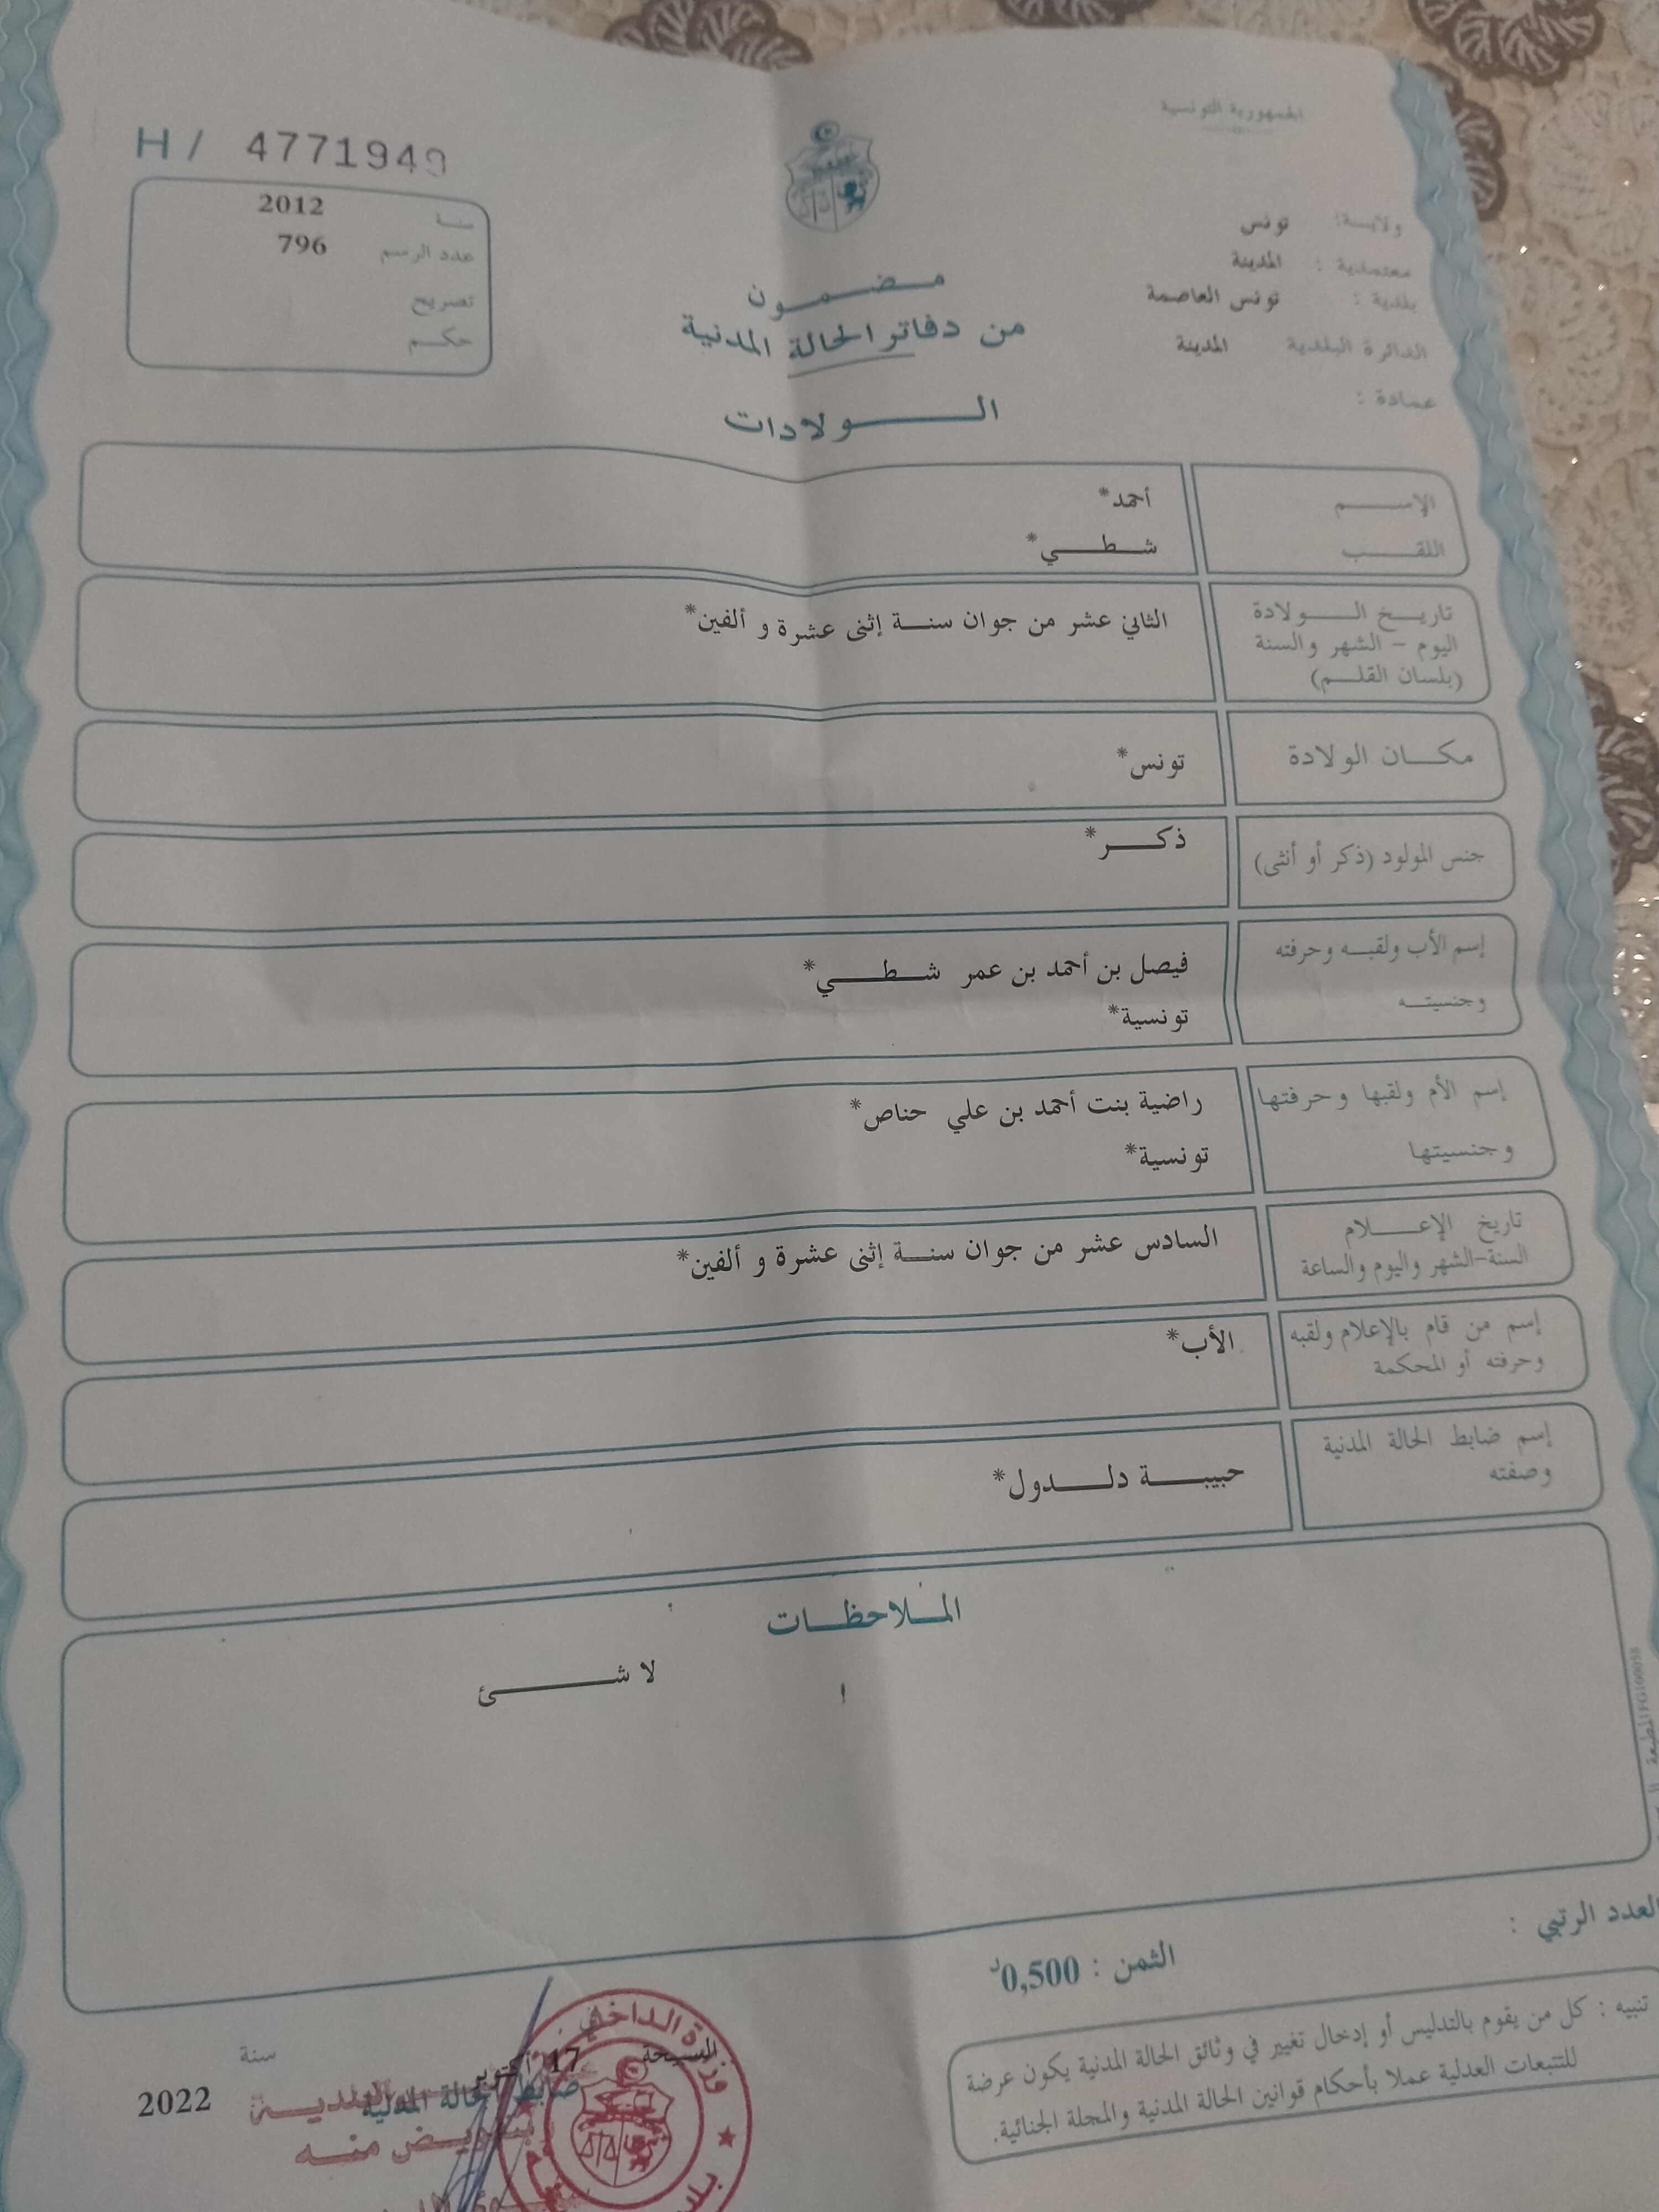 الجمهورية التونسية
H / 4771949
سنة 2012
عدد الرسم 796
تصريح
حكم
ولاية: تونس
معتمدية : المدينة
بلدية : تونس العاصمة
الدائرة البلدية المدينة
عمادة :
مضمون
من دفاتر الحالة المدنية
الولادات
الإسم أحمد*
اللقب شطي*
تاريخ الولادة
اليوم - الشهر والسنة
(بلسان القلم)
الثاني عشر من جوان سنة إثنى عشرة و ألفين*
مكان الولادة تونس*
جنس المولود (ذكر أو أنثى) ذكر*
إسم الأب ولقبه وحرفته فيصل بن أحمد بن عمر شطي*
وجنسيته تونسية*
إسم الأم ولقبها وحرفتها راضية بنت أحمد بن علي حناص*
وجنسيتها تونسية*
تاريخ الإعلام
السنة-الشهر واليوم والساعة
السادس عشر من جوان سنة إثنى عشرة و ألفين*
إسم من قام بالإعلام ولقبه
وحرفته أو المحكمة
الأب*
إسم ضابط الحالة المدنية
وصفته
حبيبة دلدول*
الملاحظات
لا شئ
العدد الرتبي :
الثمن : 0,500د
تنبيه : كل من يقوم بالتدليس أو إدخال تغيير في وثائق الحالة المدنية يكون عرضة
للتتبعات العدلية عملا بأحكام قوانين الحالة المدنية والمجلة الجنائية.
السيجة في 17 أكتوبر سنة 2022
ضابط الحالة المدنية
بتفويض منه
وزارة الداخلية